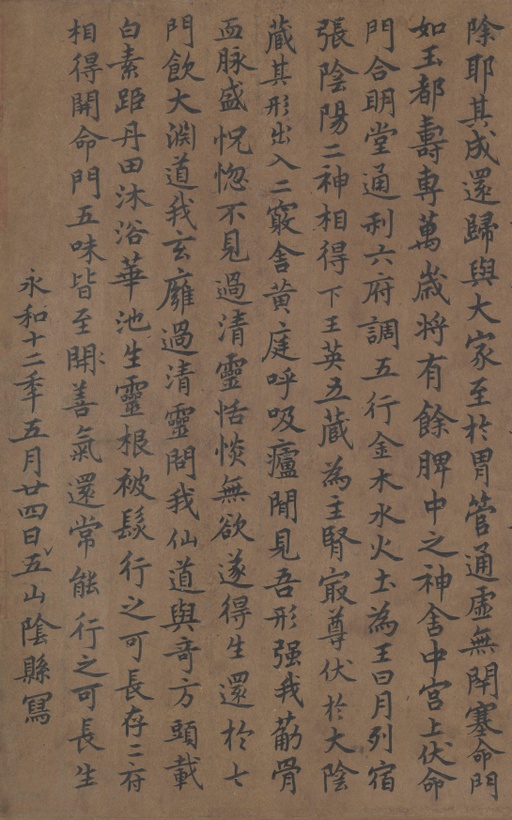 除耶其成還歸與大家至於胃管通虛無閇塞命門
如玉都壽專萬歲將有餘脾中之神舍中宫上伏命
門合明堂通利六府調五行金木水火土為王日月列宿
張陰陽二神相得下王英五藏為主腎寂尊伏於大陰
藏其形出入二竅舍黄庭呼吸廬閒見吾形强我筋骨
血脉盛怳惚不見過清靈恬惔無欲遂得生還於七
門飲大渊道我玄廱過清靈問我仙道與奇方頭載
白素距丹田沐浴華池生靈根被髮行之可長存二府
相得開命門五味皆至開善氣還常能行之可長生
永和十二年五月廿四日五山陰縣寫